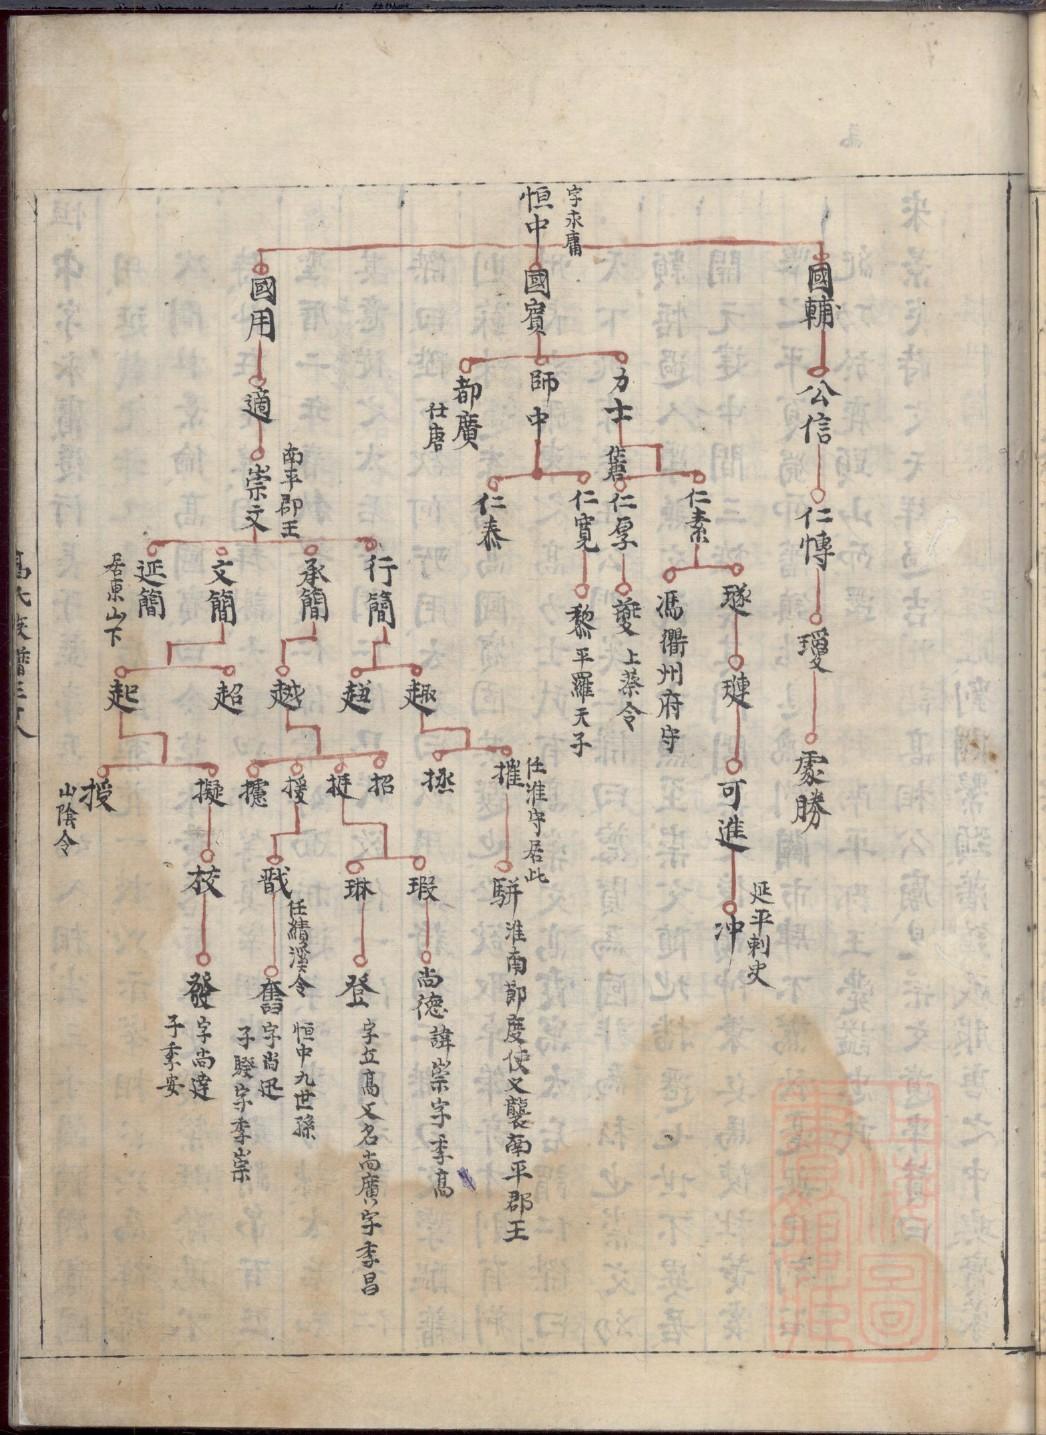 恒中
字永庸
國輔
國賓
國用
公信
力士
師中
都廣
仕唐
適
仁慱
仁素
仁厚
仁寬
仁泰
崇文
南平郡王
瑷
璲
馮衢州府守
夔
上蔡令
黎
平羅天子
行簡
承簡
文簡
延簡
居東山下
處勝
璉
趣
越
超
起
可進
摧
任淮守居此
拯
招
挺
援
攄
擬
授
山陰令
冲
延平刺史
駢
淮南節度使又襲南平郡王
瑕
琳
戬
任績溪令
校
尚德
諱崇字季高
登
字立高又名尚廣字季昌
奮
恒中九世孫
字尚迅
子騤字季崇
發
字尚達
子秉安